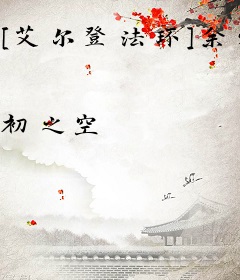 [艾尔登法环]
初之空